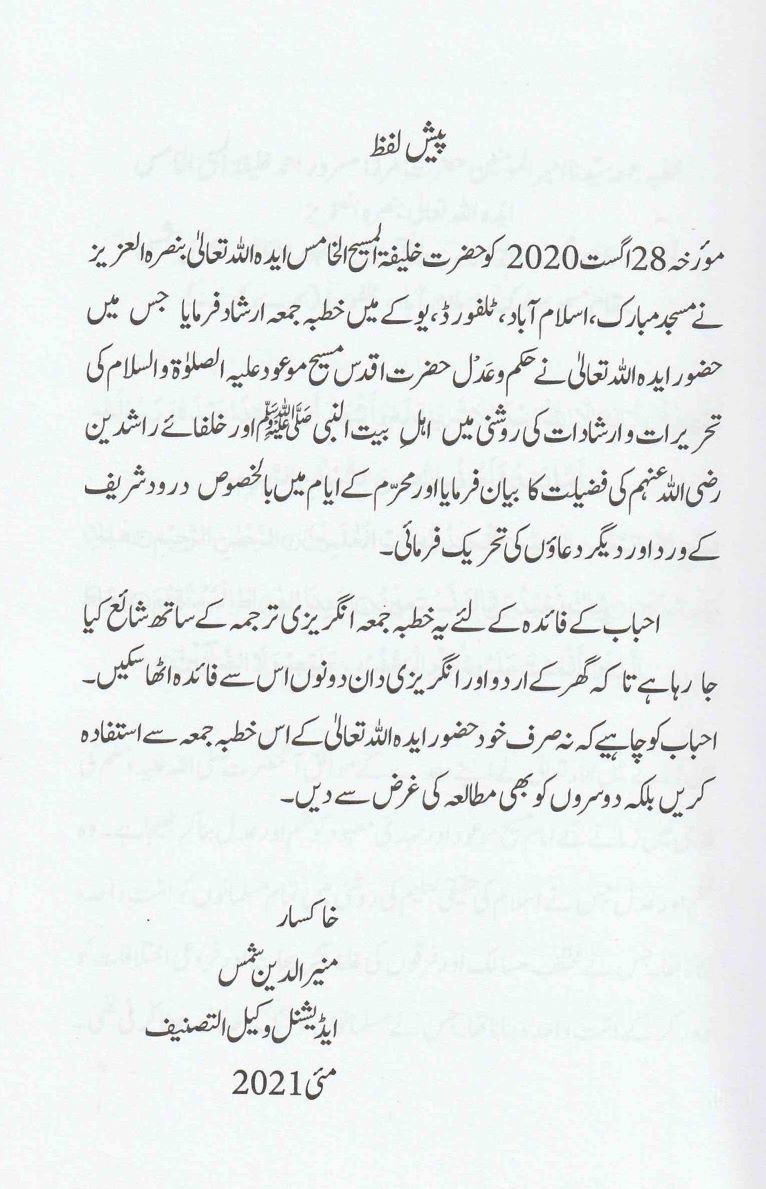 پیش لفظ
مؤرخہ 28 اگست 2020 کو حضرت خلیفۃ المسیح الخامس ایدہ اللہ تعالیٰ بنصرہ العزیز
نے مسجد مبارک، اسلام آباد، ٹلفورڈ، یوکے میں خطبہ جمعہ ارشاد فرمایا جس میں
حضور ایدہ اللہ تعالیٰ نے حکم و عَدْل حضرت اقدس مسیح موعود علیہ الصلوٰۃ والسلام کی
تحریرات و ارشادات کی روشنی میں اہلِ بیت النبی صلی اللہ علیہ وسلم اور خلفائے راشدین
رضی اللہ عنہم کی فضیلت کا بیان فرمایا اور محرّم کے ایام میں بالخصوص درود شریف
کے ورد اور دیگر دعاؤں کی تحریک فرمائی۔
احباب کے فائدہ کے لئے یہ خطبہ جمعہ انگریزی ترجمہ کے ساتھ شائع کیا
جا رہا ہے تا کہ گھر کے اردو اور انگریزی دان دونوں اس سے فائدہ اٹھا سکیں۔
احباب کو چاہیے کہ نہ صرف خود حضور ایدہ اللہ تعالیٰ کے اس خطبہ جمعہ سے استفادہ
کریں بلکہ دوسروں کو بھی مطالعہ کی غرض سے دیں۔
خاکسار
منیر الدین شمس
ایڈیشنل وکیل التصنیف
مئی 2021